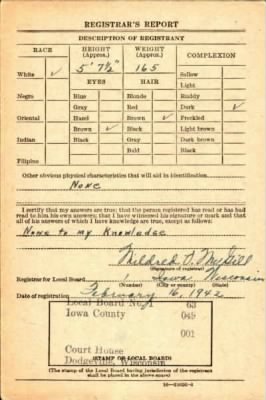 REGISTRAR'S REPORT
DESCRIPTION OF REGISTRANT
RACE HEIGHT (Approx.) WEIGHT (Approx.) COMPLEXION
5' 7½" 165
White ✓ EYES HAIR Sallow
Light
Negro Blue Blonde Ruddy
Gray Red Dark ✓
Oriental Hazel Brown ✓ Freckled
Brown ✓ Black Light brown
Indian Black Gray Dark brown
Bald Black
Filipino
Other obvious physical characteristics that will aid in identification
None
I certify that my answers are true; that the person registered has read or has had
read to him his own answers; that I have witnessed his signature or mark and that
all of his answers of which I have knowledge are true, except as follows:
None to my Knowledge
Mildred O. McGill
(Signature of registrar)
Registrar for Local Board 1 Iowa Wisconsin
(Number) (City or county) (State)
Date of registration February 16, 1942
Local Board No. 1 63
Iowa County 049
001
Court House
Dodgeville, Wisconsin
(STAMP OF LOCAL BOARD)
(The stamp of the Local Board having jurisdiction of the registrant
shall be placed in the above space.)